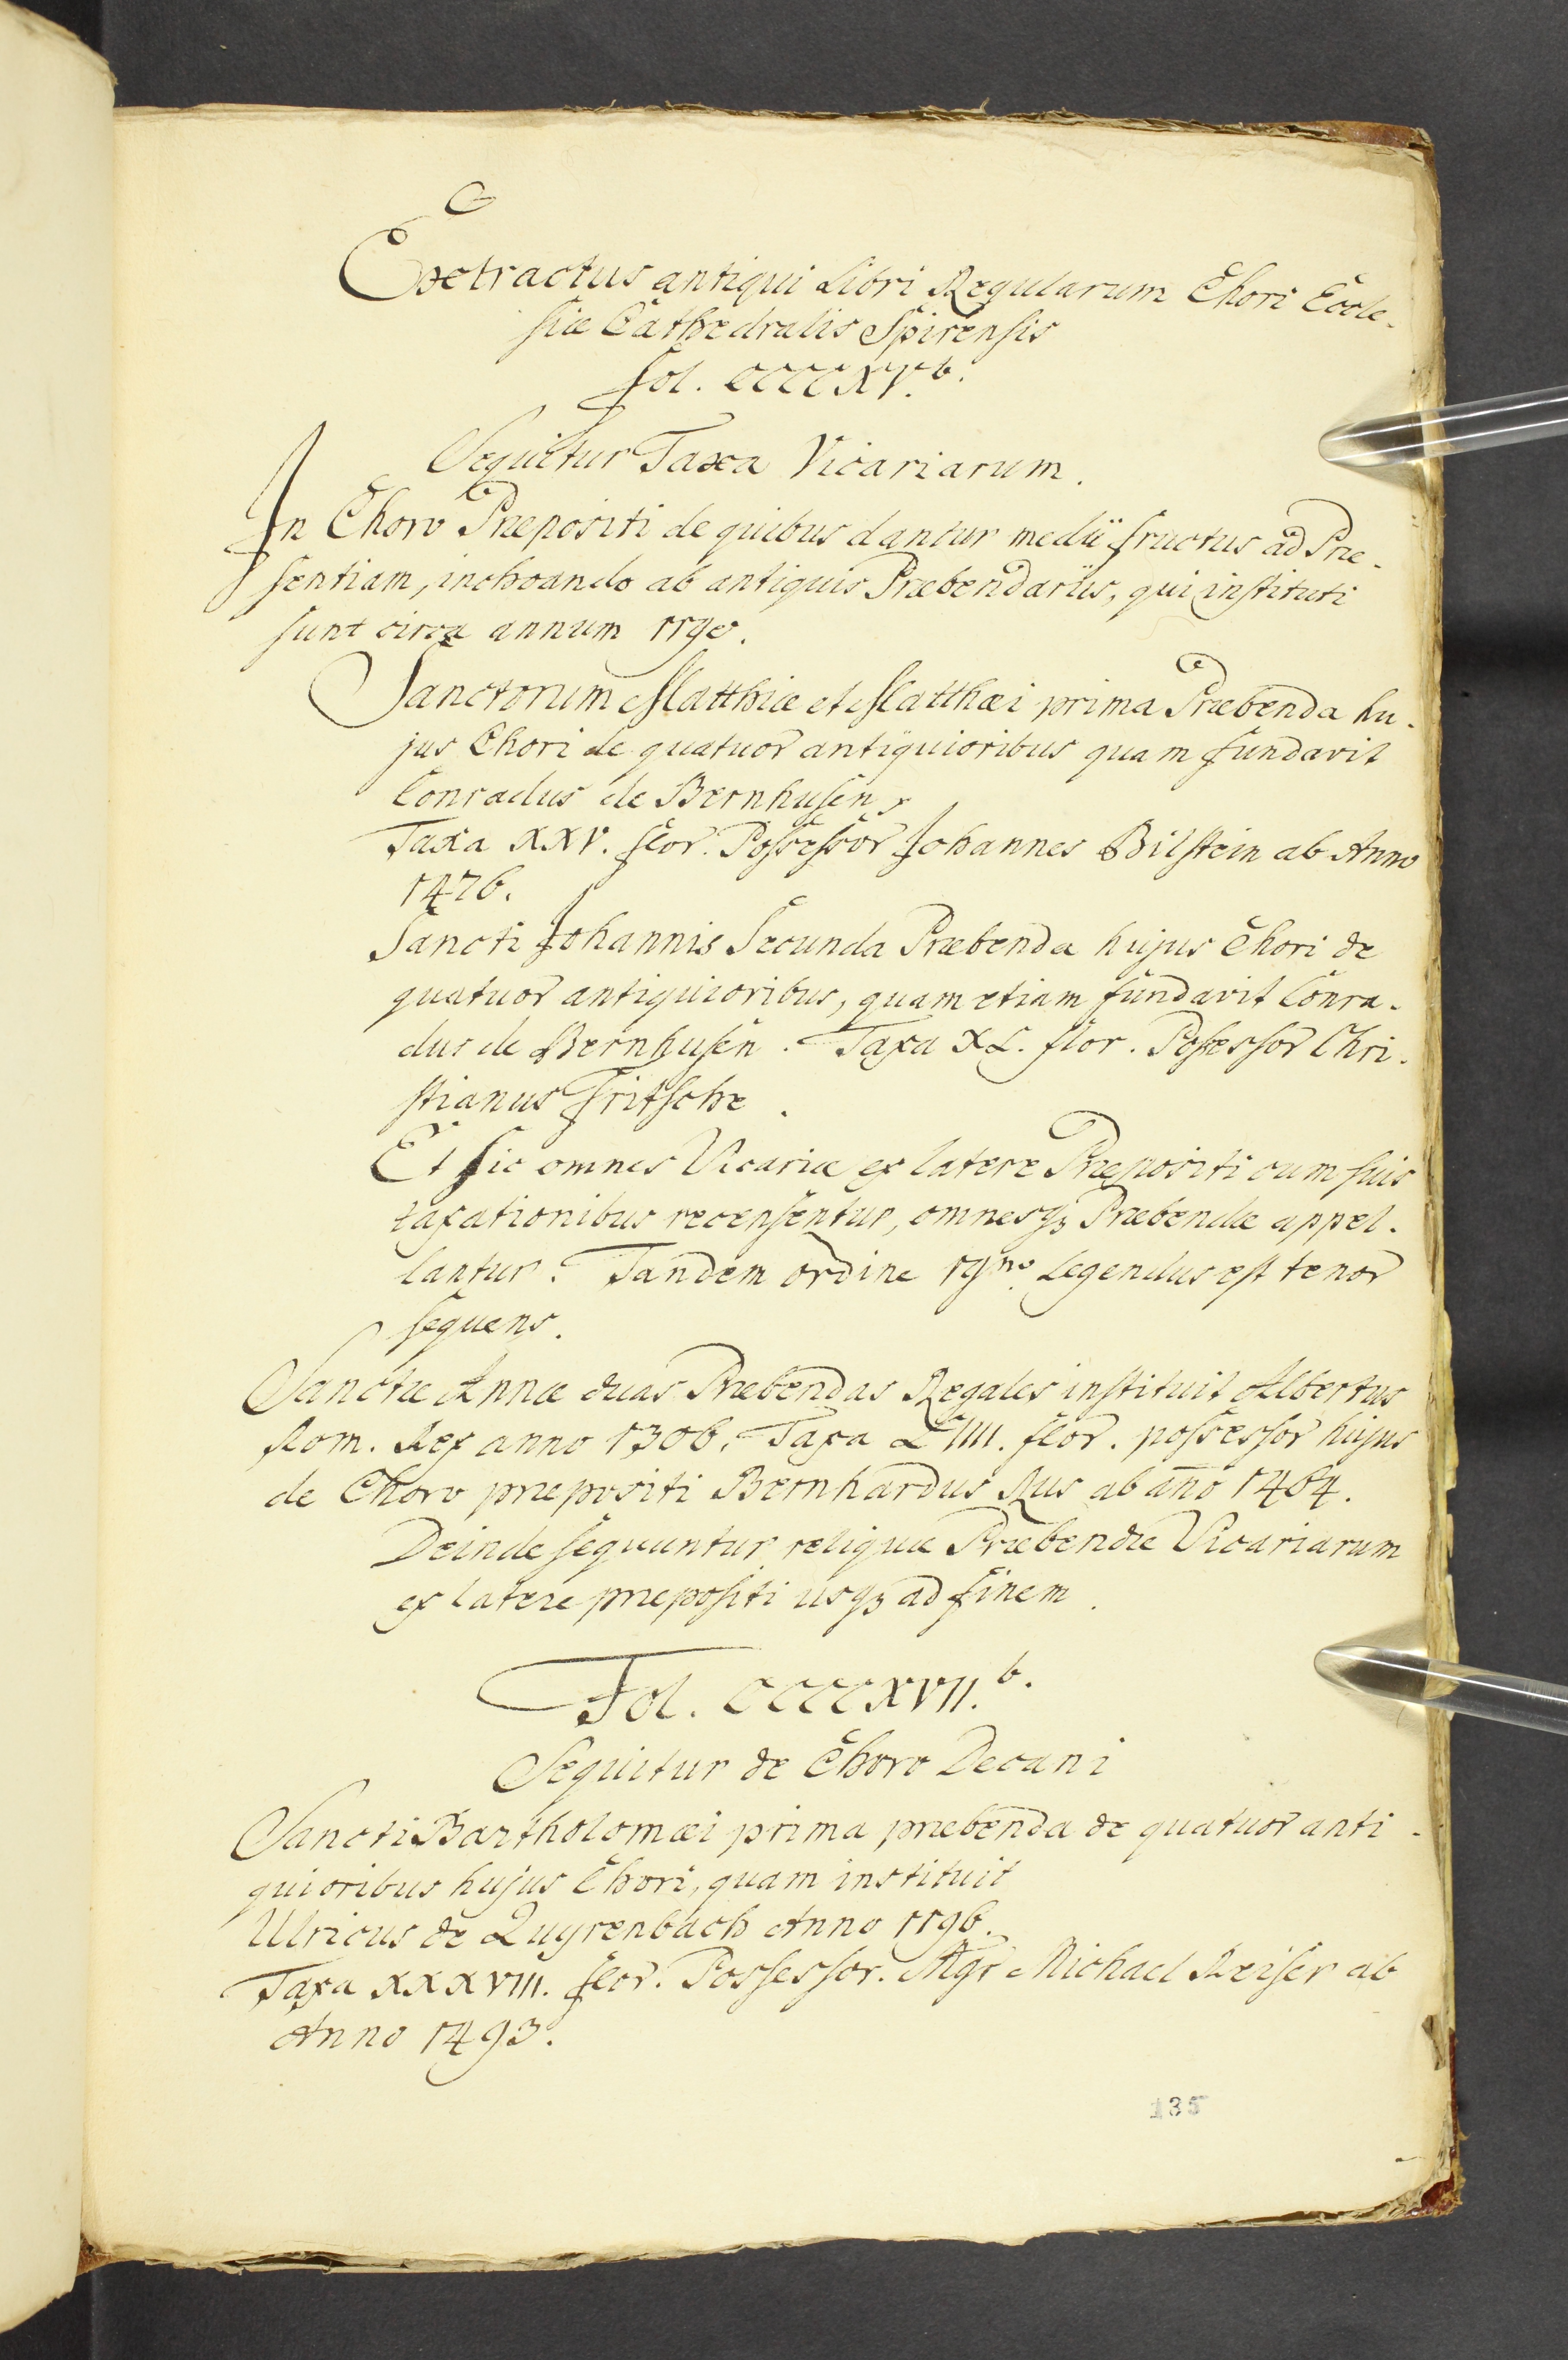 Extractus antiqui Libri Regularum Chori Eccle-
siæ Cathedralis Spirensis
fol. CCCCXV.b.
Sequitur Taxa Vicariarum.
In Choro Præpositi de quibus dantur medii fructus ad Præ-
sentiam, inchoando ab antiquis Præbendariis, qui instituti
sunt circa annum 1190.
Sanctorum Matthiæ et Matthæi prima Præbenda hu-
jus Chori de quatuor antiquioribus quam fundavit
Conradus de Bernhusen,
Taxa XXV. flor. Possessor Johannes Bilstein ab Anno
1476.
Sancti Johannis Secunda Præbenda hujus Chori de
quatuor antiquioribus, quam etiam fundavit Conra-
dus de Bernhusen. Taxa XL. flor. Possessor Chri-
stianus Fritsche.
Et sic omnes Vicariæ ex latere Præpositi cum suis
taxationibus recensentur, omnesqz Præbendæ appel-
lantur. Tandem ordine 19no. Legendus est tenor
sequens.
Sanctæ Annæ duas Præbendas Regales instituit Albertus
Rom. Rex anno 1306. Taxa LIIII. flor. possessor hujus
de Choro præpositi Bernhardus Rus ab año 1464.
Deinde sequuntur reliquæ Præbendæ Vicariarum
ex latere præpositi usqz ad finem.
Fol. CCCCXVII.b.
Sequitur de Choro Decani
Sancti Bartholomæi prima præbenda de quatuor anti-
quioribus hujus Chori, quam instituit
Ulricus de Zuyrenbach Anno 1196.
Taxa XXXVIII. flor. Possessor. Mgr Michael Reiser ab
Anno 1493.
135